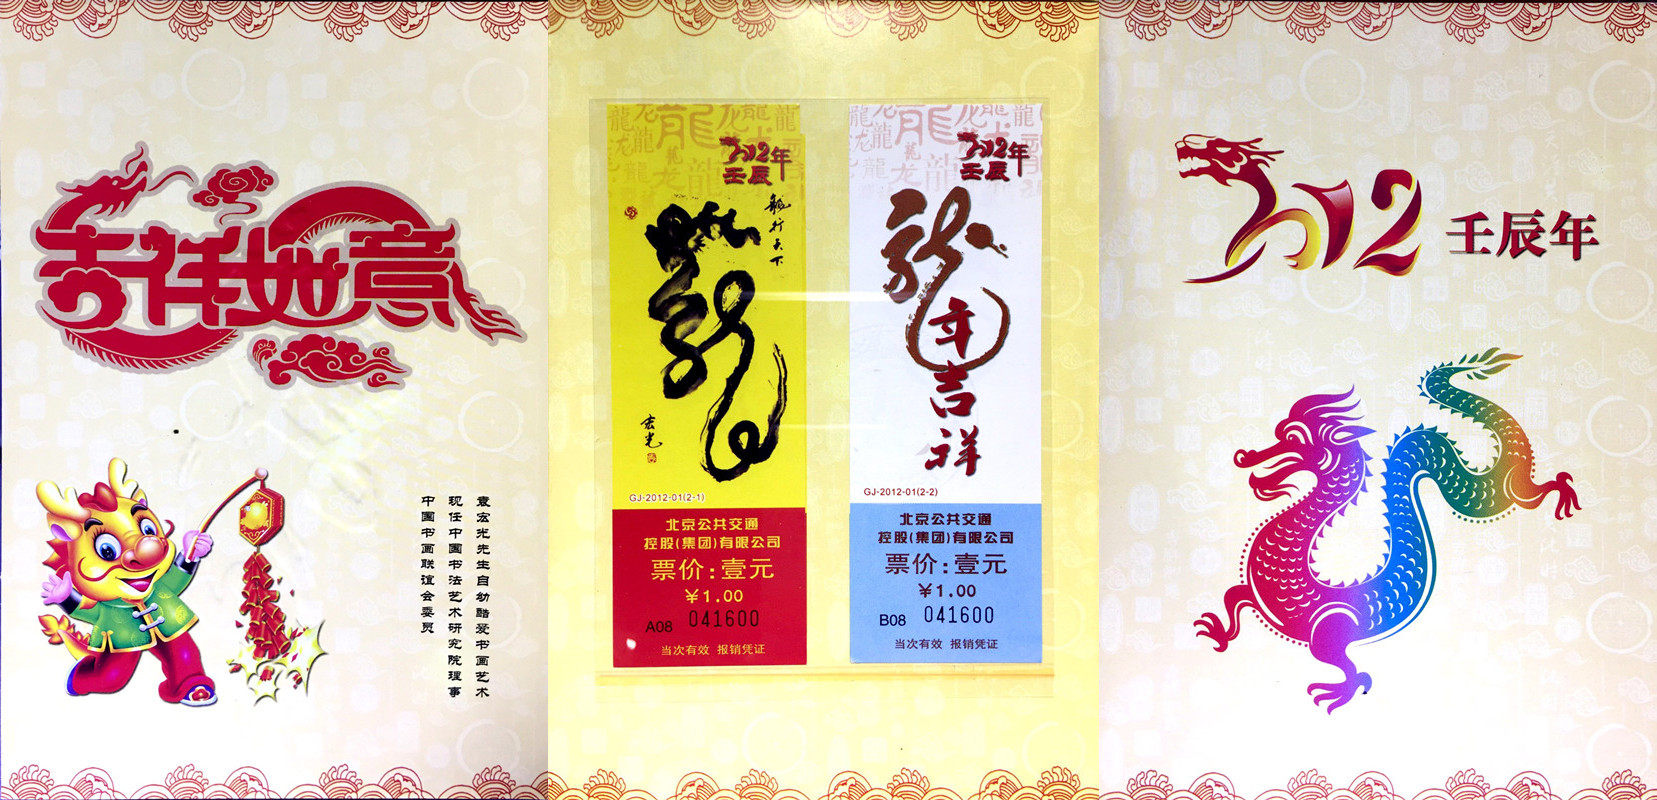 吉祥如意
袁宏光先生自幼酷爱书画艺术
现任中国书法艺术研究院理事
中国书画联谊会委员
2012年
壬辰
龍行天下
龍
宏光
GJ-2012-01(2-1)
北京公共交通
控股(集团)有限公司
票价:壹元
￥1.00
A08 041600
当次有效 报销凭证
2012年
壬辰
龙年吉祥
GJ-2012-01(2-2)
北京公共交通
控股(集团)有限公司
票价:壹元
￥1.00
B08 041600
当次有效 报销凭证
2012 壬辰年